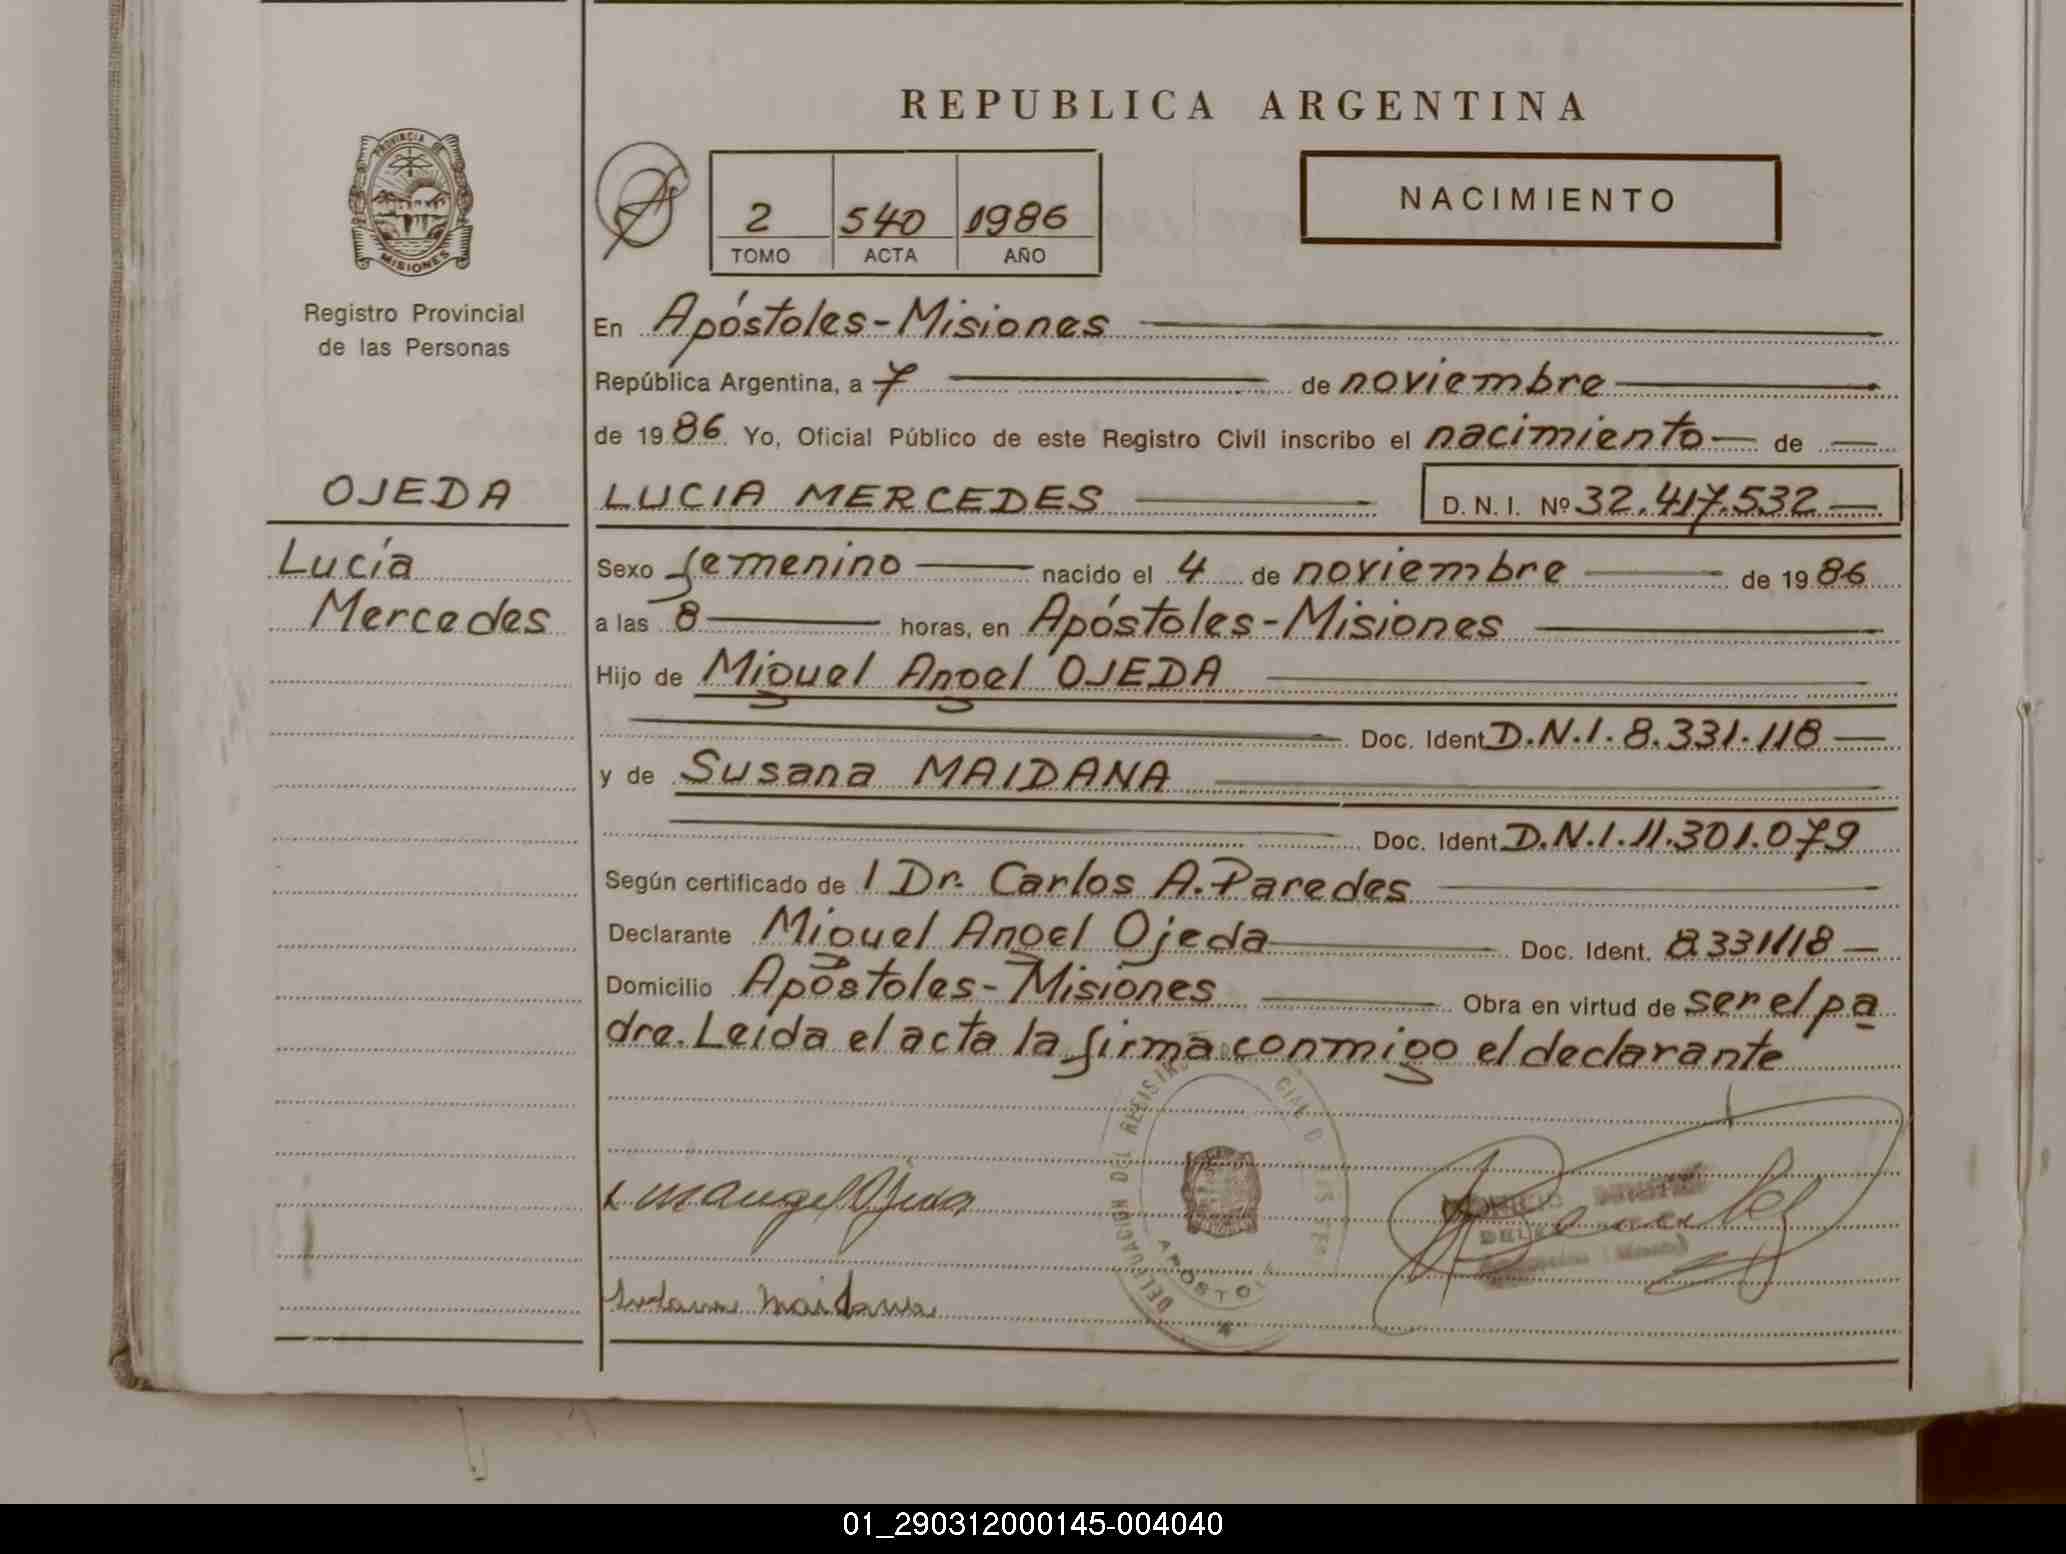 REPUBLICA ARGENTINA
PROVINCIA DE
MISIONES
Registro Provincial
de las Personas
2 540 1986
TOMO ACTA AÑO
NACIMIENTO
En Apóstoles-Misiones
República Argentina, a 7 de noviembre
de 1986 Yo, Oficial Público de este Registro Civil inscribo el nacimiento de
OJEDA
LUCIA MERCEDES D. N. I. Nº 32.417.532
Lucía
Mercedes
Sexo femenino nacido el 4 de noviembre de 1986
a las 8 horas, en Apóstoles-Misiones
Hijo de Miguel Angel OJEDA
Doc. Ident. D.N.I. 8.331.118
y de Susana MAIDANA
Doc. Ident. D.N.I. 11.301.079
Según certificado de 1 Dr. Carlos A. Paredes
Declarante Miguel Angel Ojeda Doc. Ident. 8331118
Domicilio Apóstoles-Misiones Obra en virtud de ser el pa
dre. Leída el acta la firma conmigo el declarante
M Angel Ojeda
Susana Maidana
01_290312000145-004040